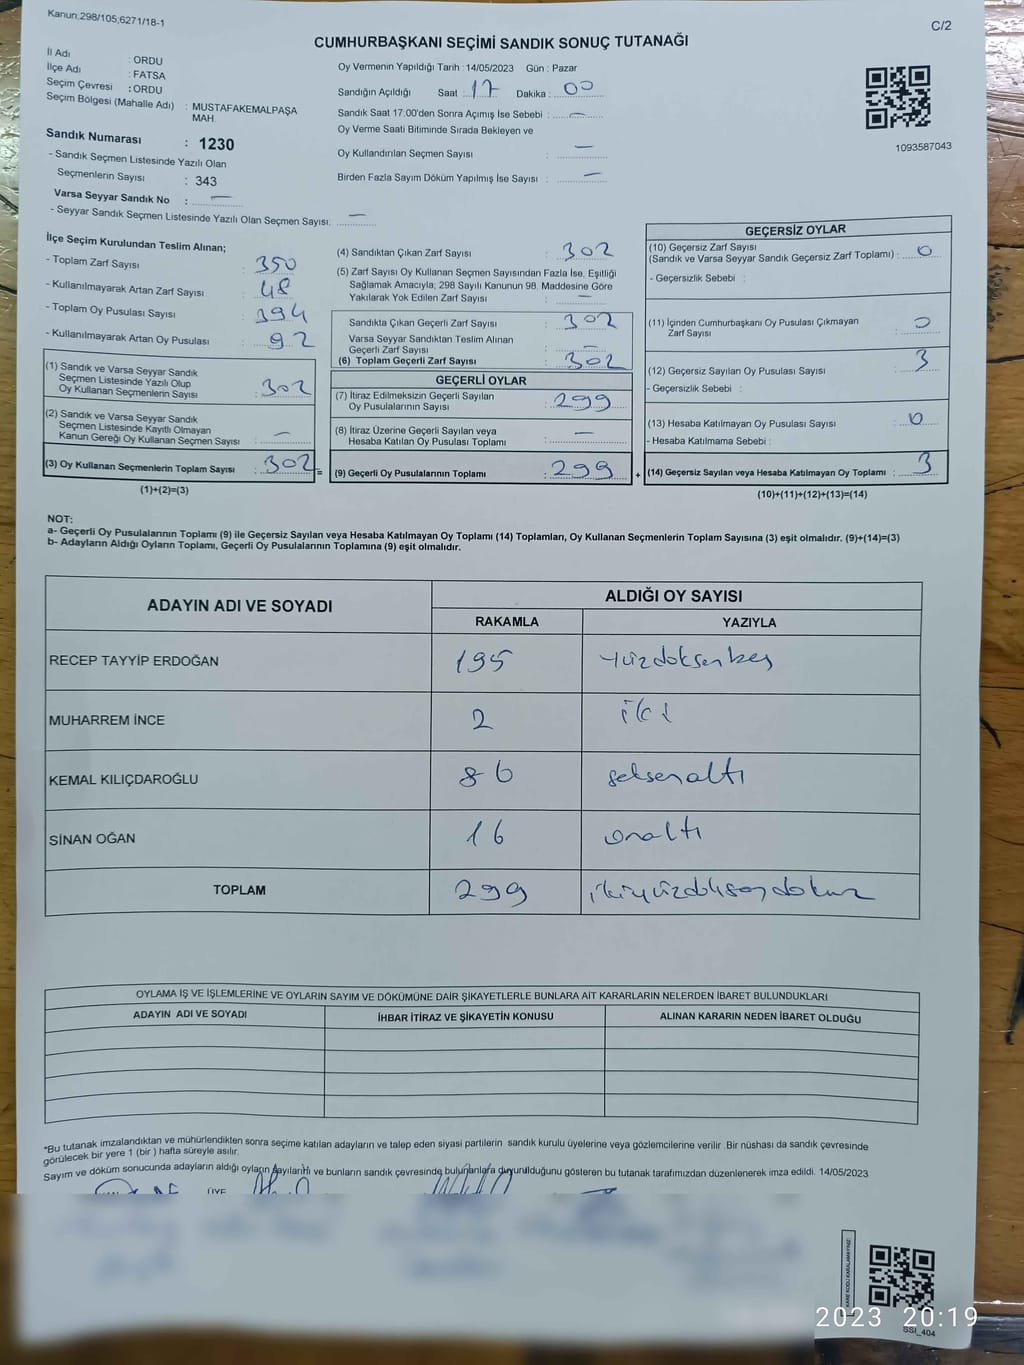 Kanun;298/105;6271/18-1
C/2
CUMHURBAŞKANI SEÇİMİ SANDIK SONUÇ TUTANAĞI
İl Adı : ORDU
İlçe Adı : FATSA
Seçim Çevresi : ORDU
Seçim Bölgesi (Mahalle Adı) : MUSTAFAKEMALPAŞA
MAH.
Sandık Numarası : 1230
- Sandık Seçmen Listesinde Yazılı Olan
Seçmenlerin Sayısı : 343
Varsa Seyyar Sandık No : —
- Seyyar Sandık Seçmen Listesinde Yazılı Olan Seçmen Sayısı: —
Oy Vermenin Yapıldığı Tarih : 14/05/2023 Gün : Pazar
Sandığın Açıldığı Saat : 17 Dakika : 00
Sandık Saat 17:00'den Sonra Açımış İse Sebebi : —
Oy Verme Saati Bitiminde Sırada Bekleyen ve
Oy Kullandırılan Seçmen Sayısı : —
Birden Fazla Sayım Döküm Yapılmış İse Sayısı : —
1093587043
İlçe Seçim Kurulundan Teslim Alınan;
- Toplam Zarf Sayısı : 350
- Kullanılmayarak Artan Zarf Sayısı : 48
- Toplam Oy Pusulası Sayısı : 394
- Kullanılmayarak Artan Oy Pusulası : 92
(1) Sandık ve Varsa Seyyar Sandık
Seçmen Listesinde Yazılı Olup
Oy Kullanan Seçmenlerin Sayısı : 302
(2) Sandık ve Varsa Seyyar Sandık
Seçmen Listesinde Kayıtlı Olmayan
Kanun Gereği Oy Kullanan Seçmen Sayısı : —
(3) Oy Kullanan Seçmenlerin Toplam Sayısı : 302 =
(1)+(2)=(3)
(4) Sandıktan Çıkan Zarf Sayısı : 302
(5) Zarf Sayısı Oy Kullanan Seçmen Sayısından Fazla İse, Eşitliği
Sağlamak Amacıyla; 298 Sayılı Kanunun 98. Maddesine Göre
Yakılarak Yok Edilen Zarf Sayısı : —
Sandıkta Çıkan Geçerli Zarf Sayısı : 302
Varsa Seyyar Sandıktan Teslim Alınan
Geçerli Zarf Sayısı : —
(6) Toplam Geçerli Zarf Sayısı : 302
GEÇERLİ OYLAR
(7) İtiraz Edilmeksizin Geçerli Sayılan
Oy Pusulalarının Sayısı : 299
(8) İtiraz Üzerine Geçerli Sayılan veya
Hesaba Katılan Oy Pusulası Toplamı : —
(9) Geçerli Oy Pusulalarının Toplamı : 299 +
GEÇERSİZ OYLAR
(10) Geçersiz Zarf Sayısı
(Sandık ve Varsa Seyyar Sandık Geçersiz Zarf Toplamı) : 0
- Geçersizlik Sebebi :
(11) İçinden Cumhurbaşkanı Oy Pusulası Çıkmayan
Zarf Sayısı : 0
(12) Geçersiz Sayılan Oy Pusulası Sayısı : 3
- Geçersizlik Sebebi :
(13) Hesaba Katılmayan Oy Pusulası Sayısı : 0
- Hesaba Katılmama Sebebi :
(14) Geçersiz Sayılan veya Hesaba Katılmayan Oy Toplamı : 3
(10)+(11)+(12)+(13)=(14)
NOT:
a- Geçerli Oy Pusulalarının Toplamı (9) ile Geçersiz Sayılan veya Hesaba Katılmayan Oy Toplamı (14) Toplamları, Oy Kullanan Seçmenlerin Toplam Sayısına (3) eşit olmalıdır. (9)+(14)=(3)
b- Adayların Aldığı Oyların Toplamı, Geçerli Oy Pusulalarının Toplamına (9) eşit olmalıdır.
ADAYIN ADI VE SOYADI
ALDIĞI OY SAYISI
RAKAMLA YAZIYLA
RECEP TAYYİP ERDOĞAN 195 yüzdoksanbeş
MUHARREM İNCE 2 iki
KEMAL KILIÇDAROĞLU 86 seksenaltı
SİNAN OĞAN 16 onaltı
TOPLAM 299 ikiyüzdoksandokuz
OYLAMA İŞ VE İŞLEMLERİNE VE OYLARIN SAYIM VE DÖKÜMÜNE DAİR ŞİKAYETLERLE BUNLARA AİT KARARLARIN NELERDEN İBARET BULUNDUKLARI
ADAYIN ADI VE SOYADI İHBAR İTİRAZ VE ŞİKAYETİN KONUSU ALINAN KARARIN NEDEN İBARET OLDUĞU
*Bu tutanak imzalandıktan ve mühürlendikten sonra seçime katılan adayların ve talep eden siyasi partilerin sandık kurulu üyelerine veya gözlemcilerine verilir .Bir nüshası da sandık çevresinde
görülecek bir yere 1 (bir ) hafta süreyle asılır.
Sayım ve döküm sonucunda adayların aldığı oyların sayılarını ve bunların sandık çevresinde bulunanlara duyurulduğunu gösteren bu tutanak tarafımızdan düzenlenerek imza edildi. 14/05/2023
ÜYE
2023 20:19
SSI_404